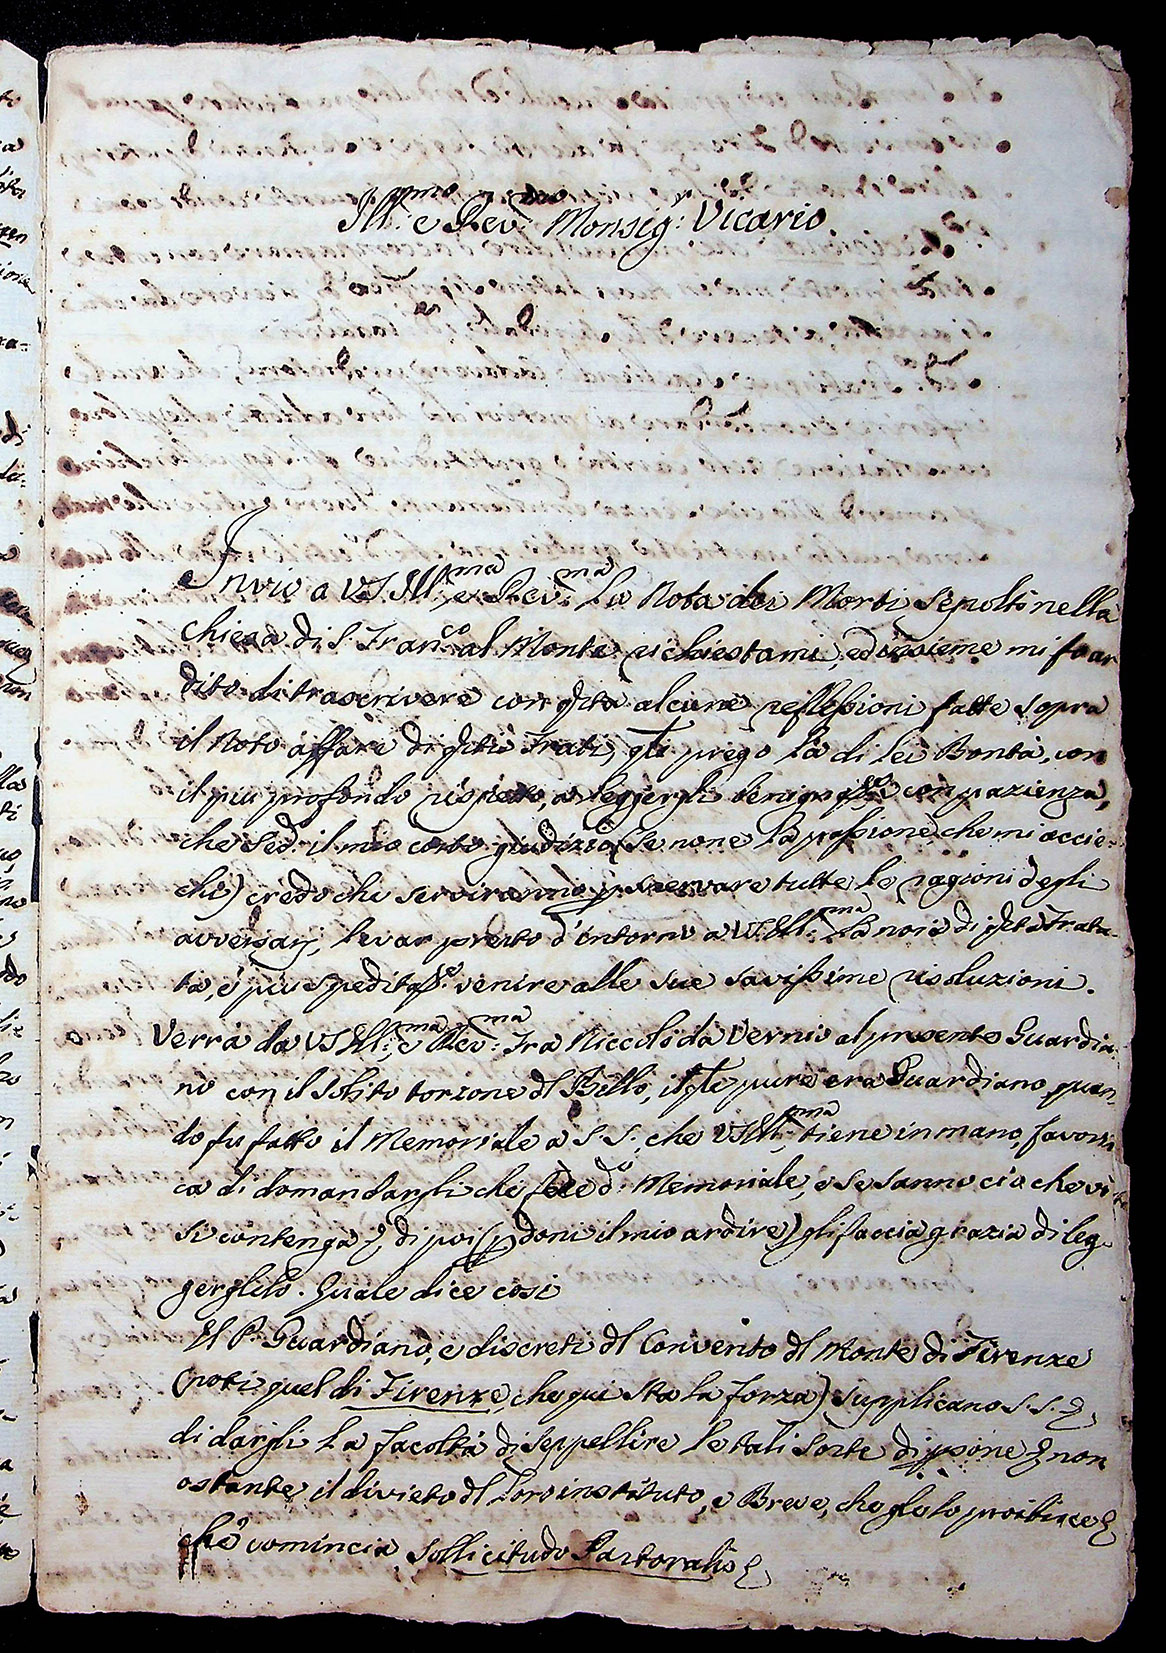 Ill.mo e Rev.mo Monsig.r Vicario
Invio a VS Ill.ma e Rev.ma la Nota dei Morti Sepolti nella
chiesa di S. Fran.co al Monte richiestami, ed insieme mi fo ar
dito di trascrivere con q̃sta alcune reflessioni fatte sopra
il Noto affare di q̃sti Frati, q̃li prego la di lei Bontà, con
il più profondo rispetto, a leggergli con pazienza,
che sed.o il mio corto giudizio (se none la passione, che mi accie-
chi) credo che serviranno p snervare tutte le ragioni degli
avversarj, levar presto d'intorno a VS. Ill.ma la noia di q̃sta Frata-
ta, e più speditam.e venire alle sue savissime risoluzioni.
Verrà da VS Ill.ma e Rev.ma Fra Niccolò da Vernio al presente Guardia-
no con il solito torzone dl Billo, il q̃le pure era Guardiano, quan-
do fu fatto il Memoriale a S. S. che VS Ill.ma tiene in mano, favoris
ca di domandargli che fece d.o Memoriale, e se sanno ciò che vi
si contenga &, di poi (pdoni il mio ardire) gli faccia grazia di leg-
gerglilo. Quale dice così
Il P. Guardiano, e discreti dl Convento dl Monte di Firenze
(noti quel di Firenze che qui sta la forza) supplicano S. S. &
di dargli la facoltà di seppellire le tali sorte di psone & non
ostante il divieto dl loro instituto, e Breve, che glielo proibisce &
che comincia Sollicitudo Pastoralis &